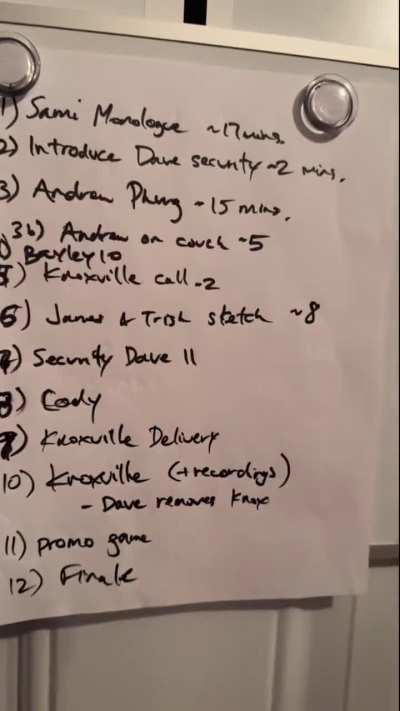 1) Sami Monologue ~17 mins.
2) Introduce Dave security ~2 mins.
3) Andrew Phung ~15 mins.
3b) Andrew on couch ~5
) Barley 10
5) Knoxville call ~2
6) James & Trish sketch ~8
7) Security Dave 11
8) Cody
9) Knoxville Delivery
10) Knoxville (+recordings)
- Dave removes Knox
11) promo game
12) Finale